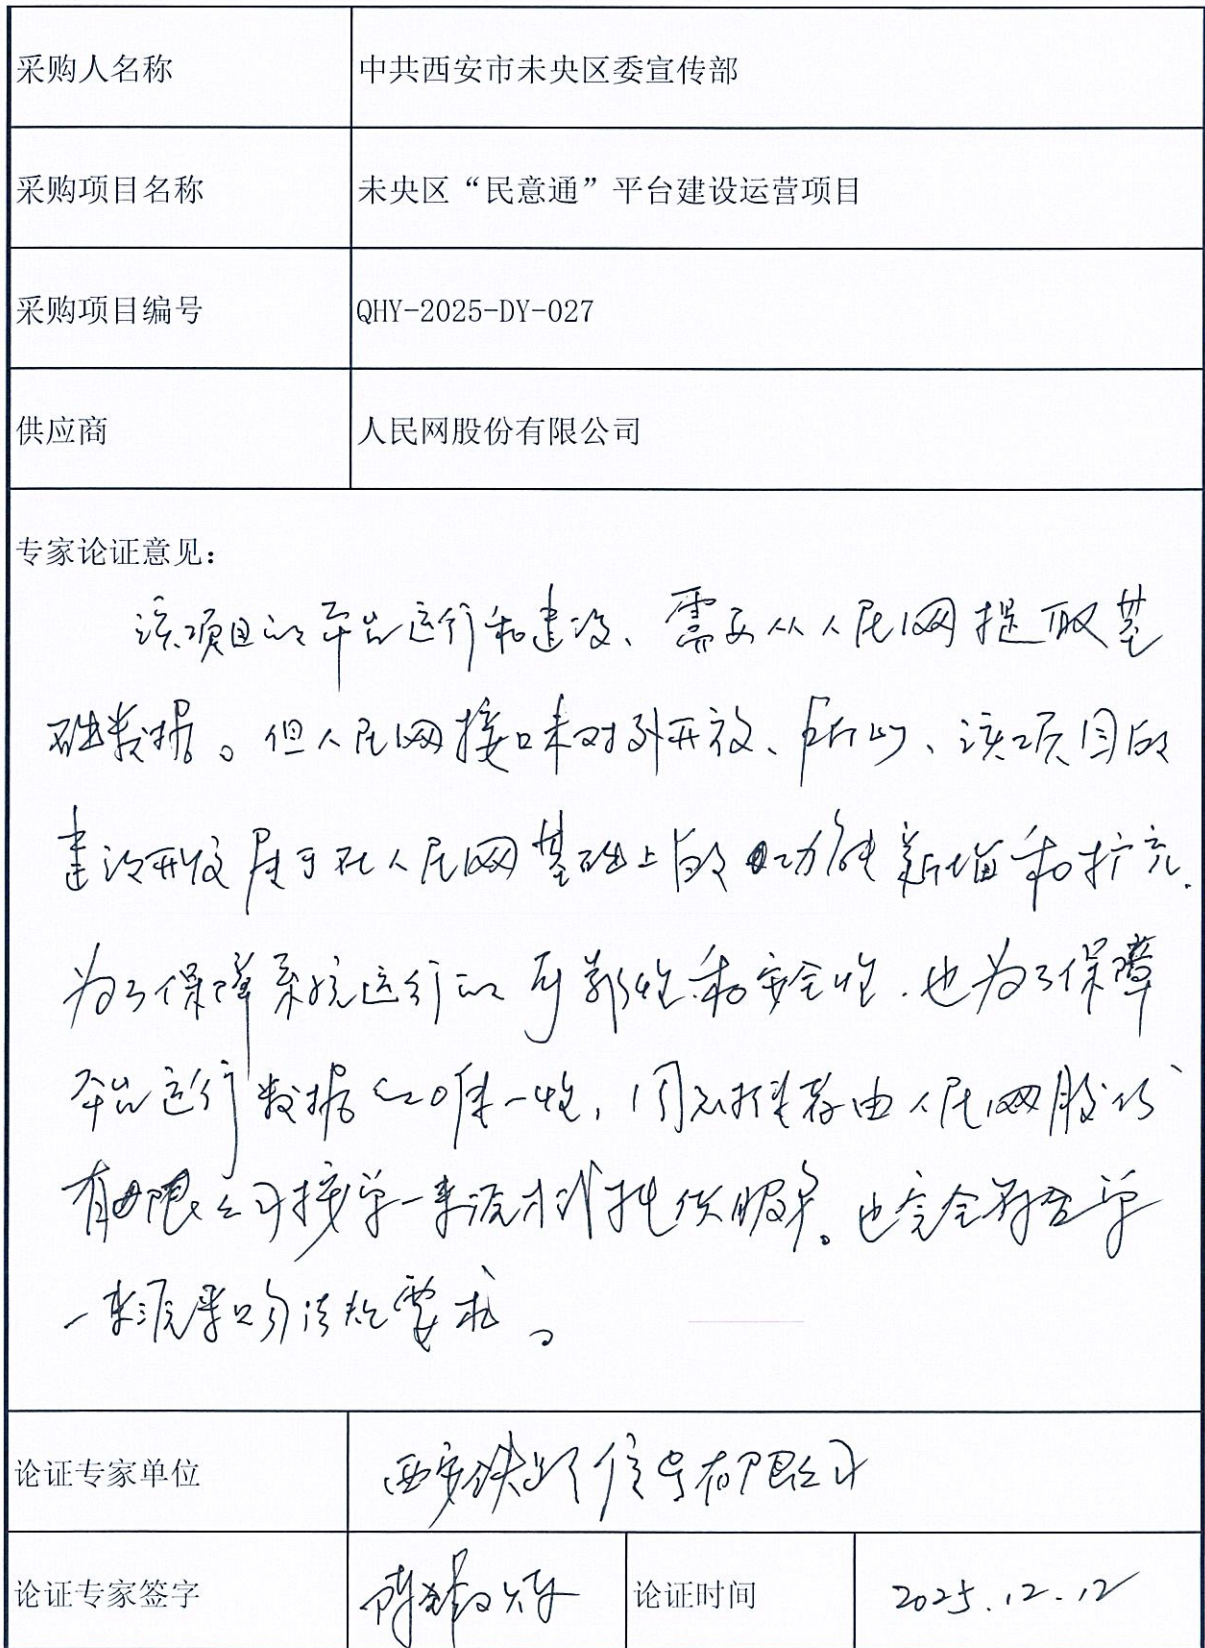 采购人名称 中共西安市未央区委宣传部
采购项目名称 未央区“民意通”平台建设运营项目
采购项目编号 QHY-2025-DY-027
供应商 人民网股份有限公司
专家论证意见：
该项目的平台运行和建设、需要从人民网提取基
础数据。但人民网接口未对外开放、所以、该项目的
建设开发属于在人民网基础上的功能新增和扩充.
为了保障系统运行的可靠性和安全性.也为了保障
平台运行数据的唯一性，同意推荐由人民网股份
有限公司按单一来源方式提供服务。也完全符合单
一来源采购法规要求。
论证专家单位 西安铁路信号有限公司
论证专家签字 论证时间 2025.12.12